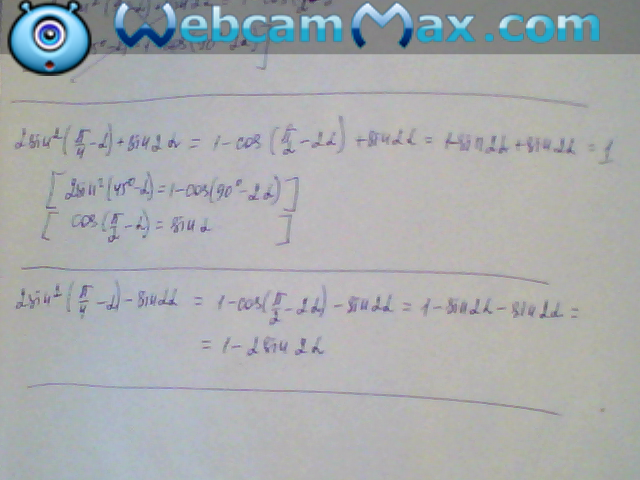 WebcamMax.com
2sin²(π/4-α)+sin2α = 1-cos(π/2-2α)+sin2α = 1-sin2α+sin2α = 1
[2sin²(45°-α)=1-cos(90°-2α)]
[cos(π/2-α)=sinα]
2sin²(π/4-α)-sin2α = 1-cos(π/2-2α)-sin2α = 1-sin2α-sin2α =
= 1-2sin2α